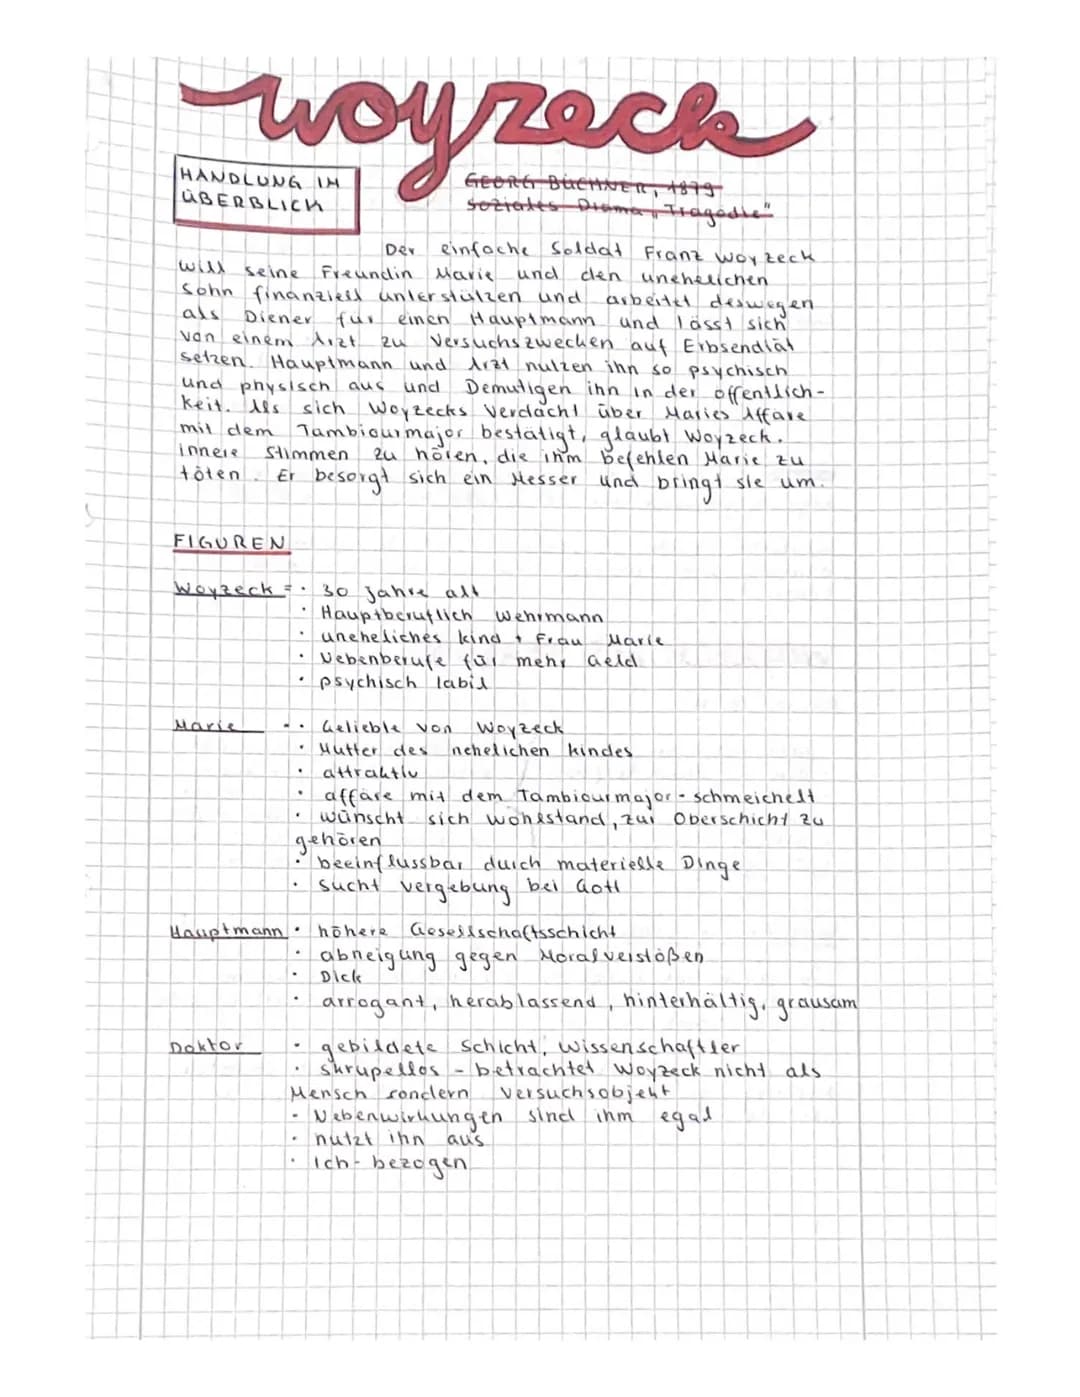 woyzeck
HANDLUNG IM
ÜBERBLICK
GEORG BÜCHNER, 1879
Soziales Drama „Tragödie"
Der einfache Soldat Franz Woyzeck
will seine Freundin Marie und den unehelichen
Sohn finanziell unterstützen und arbeitet deswegen
als Diener für einen Hauptmann und lässt sich
von einem Arzt zu Versuchszwecken auf Erbsendiät
setzen. Hauptmann und Arzt nutzen ihn so psychisch
und physisch aus und Demütigen ihn in der öffentlich-
keit. Als sich Woyzecks Verdacht über Maries Affäre
mit dem Tambourmajor bestätigt, glaubt Woyzeck.
innere Stimmen zu hören, die ihm befehlen Marie zu
töten. Er besorgt sich ein Messer und bringt sie um.
FIGUREN
Woyzeck = · 30 Jahre alt
· Hauptberuflich Wehrmann
· uneheliches kind + Frau Marie
· Nebenberufe für mehr Geld
· psychisch labil
Marie -· Geliebte von Woyzeck
· Mutter des nehelichen kindes
· attraktiv
· affäre mit dem Tambourmajor - schmeichelt
· wünscht sich wohlstand, zur Oberschicht zu
gehören
· beeinflussbar durch materielle Dinge
· sucht vergebung bei Gott
Hauptmann · höhere Gesellschaftsschicht
· abneigung gegen Moralverstößen
· Dick
· arrogant, herablassend, hinterhältig, grausam
Doktor · gebildete Schicht, Wissenschaftler
· skrupellos - betrachtet Woyzeck nicht als
Mensch sondern Versuchsobjekt
- Nebenwirkungen sind ihm egal
· nutzt ihn aus
· Ich-bezogen